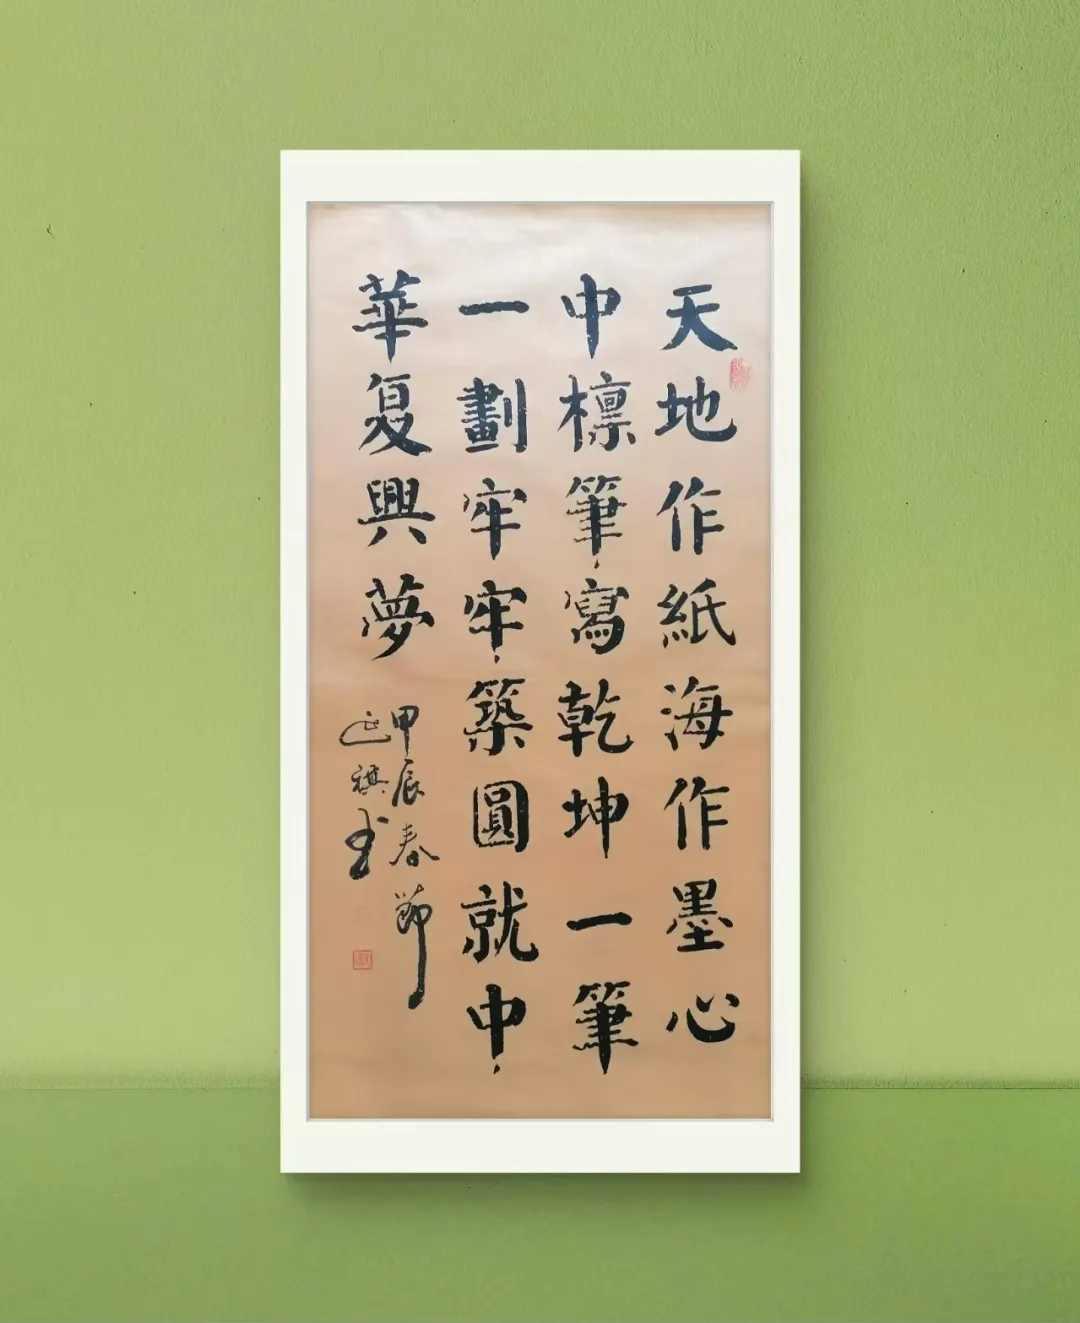 天地作紙海作墨心
中檁筆寫乾坤一筆
一劃牢牢築圓就中
華复興夢
甲辰春節
延祺书